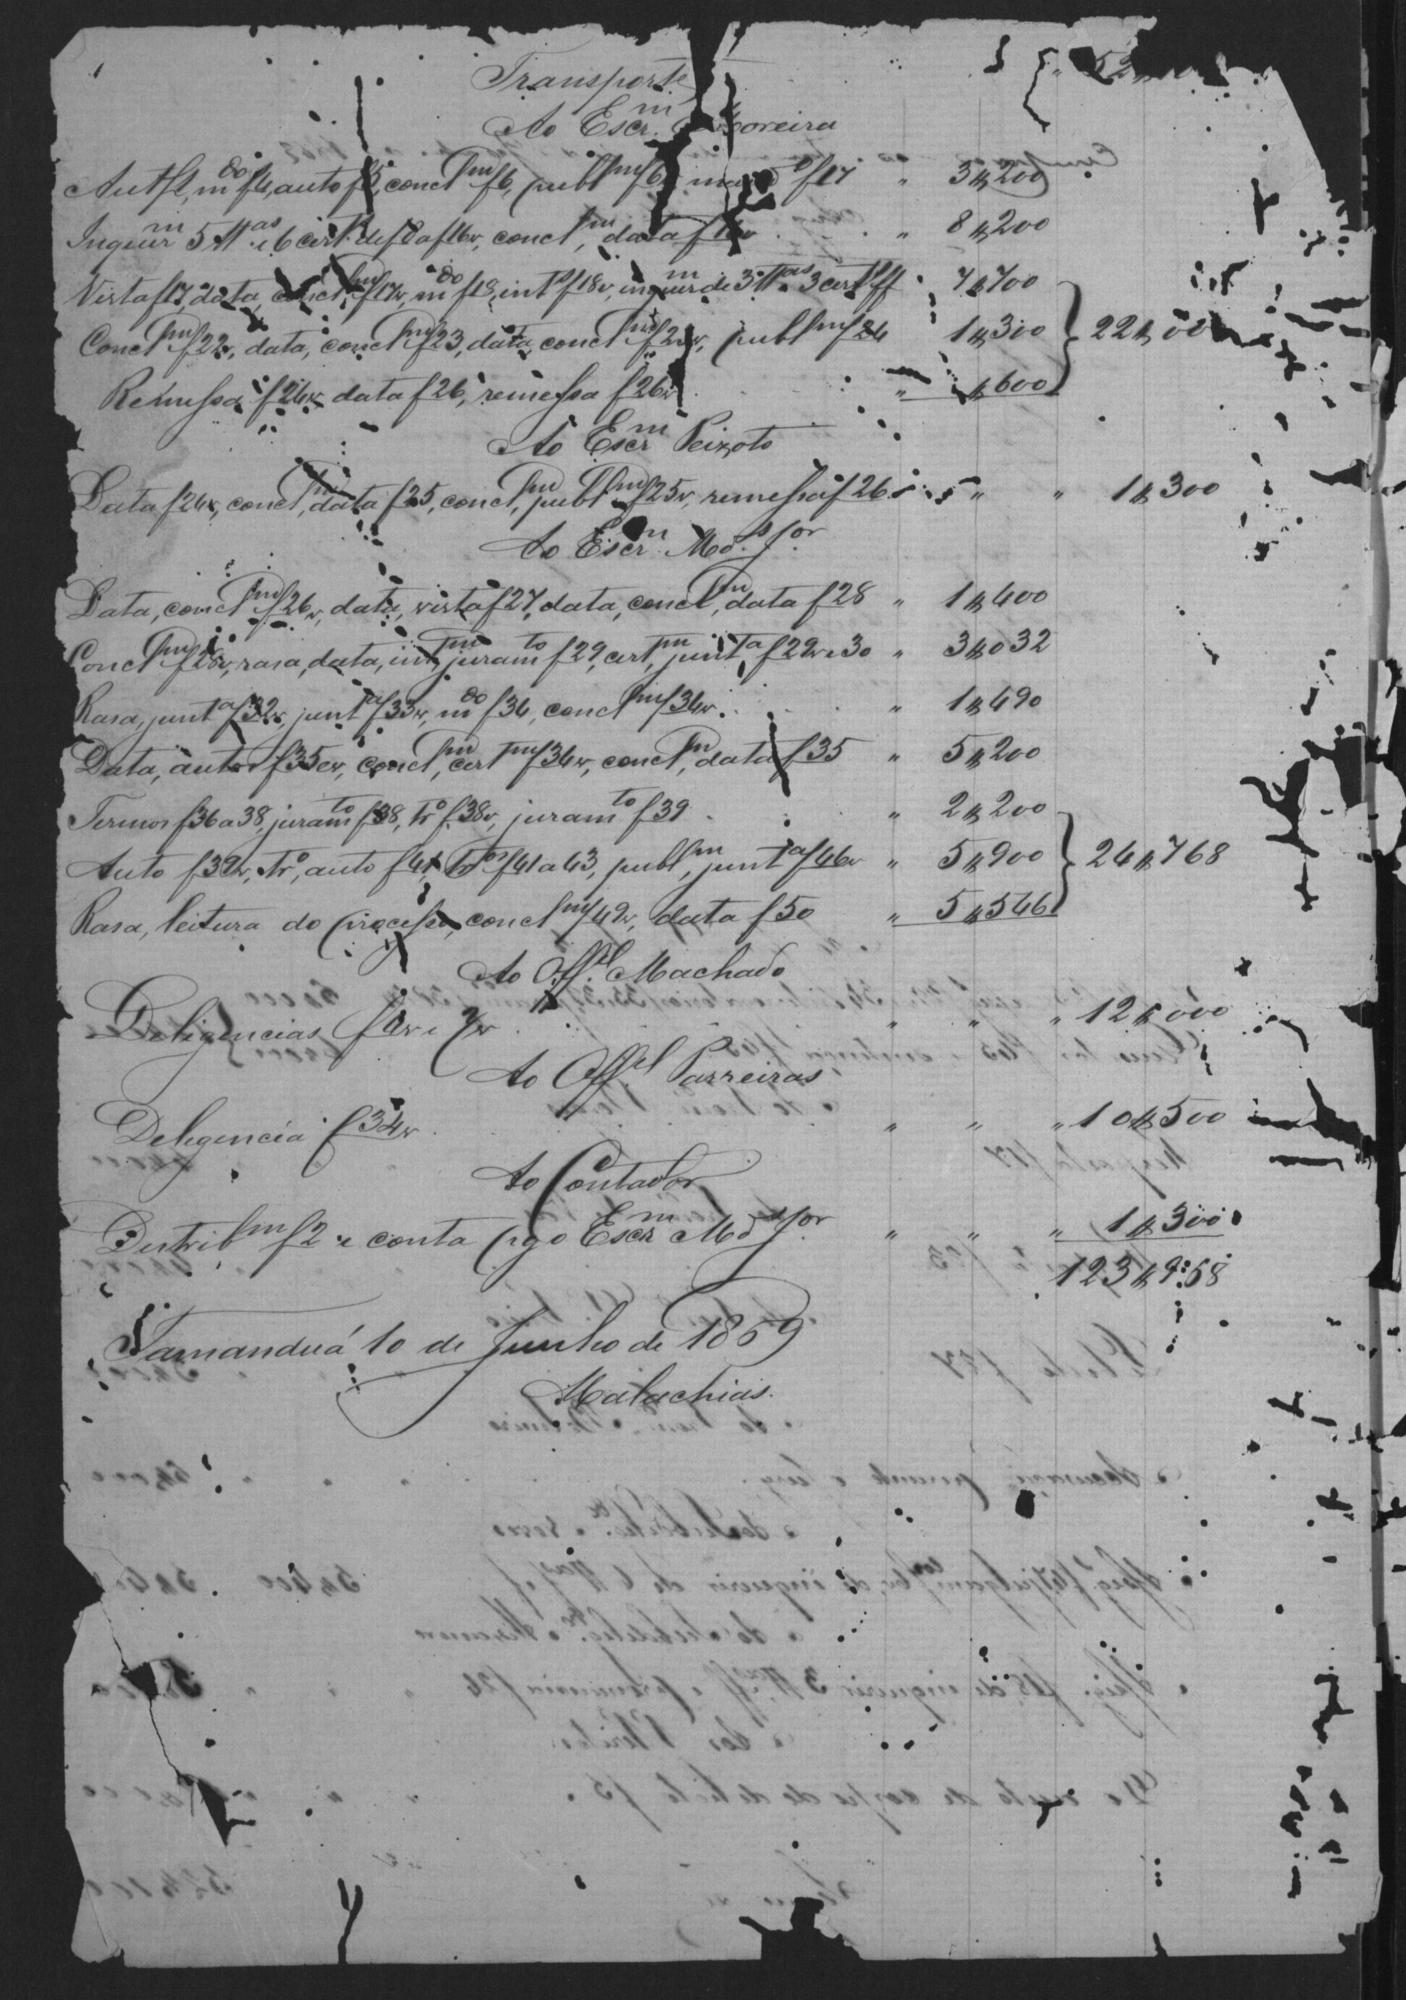 Transporte 52$100
Ao Escr.m Moreira
Aut f1, m.do f4, auto f5, concl.m f6, publ.m f6 f17 " 3$200
Inquir.m 5 tt.as e 6 cert. de f8 a f16v, concl.m, data f16v " 8$200
Vista f17, data, concl.m f17v, m.do f18, int. f18v, inquir.m de 3 tt.as 3 cert. ff 7$700
Concl.m f22v, data, concl.m f23, data, concl.m f23v, publ.m f24 1$300 } 22$00
Remessa f24v, data f26, remessa f26v " $600
Ao Escr.m Peixoto
Data f24v, concl.m, data f25, concl.m, publ.m f25v, remessa f26 " " 1$300
Ao Escr.m Md.º Jor
Data, concl.m f26v, data, vista f27, data, concl.m, data f28 " 1$400
Concl.m f28v, rasa, data, int.m juram.to f29, cert.m, junt.a f29v e 30 " 3$032
Rasa, junt.a f32v, junt.a f33v, m.do f34, concl.m f34v. " 1$490
Data, auto f35 ev, concl.m, cert.m f34v, concl.m, data f35 " 5$200
Termos f36 a 38, juram.to f38, tr.o f38v, juram.to f39 " 2$200
Auto f39v, tr.o, auto f41, tr.os f41 a 43, publ.m, junt.a f46v " 5$900 } 24$768
Rasa, leitura do processo, concl.m f49v, data f50 " 5$546
Ao Off.el Machado
Deligencias f4v e 7v " " " 12$000
Ao Off.el Parreiras
Deligencia f34v " " " 10$500
Ao Contador
Distrib.m f2 e conta pg o Escr.m Md.º Jor " " " 1$300
123$968
Tamanduá 10 de Junho de 1869
Malachias.